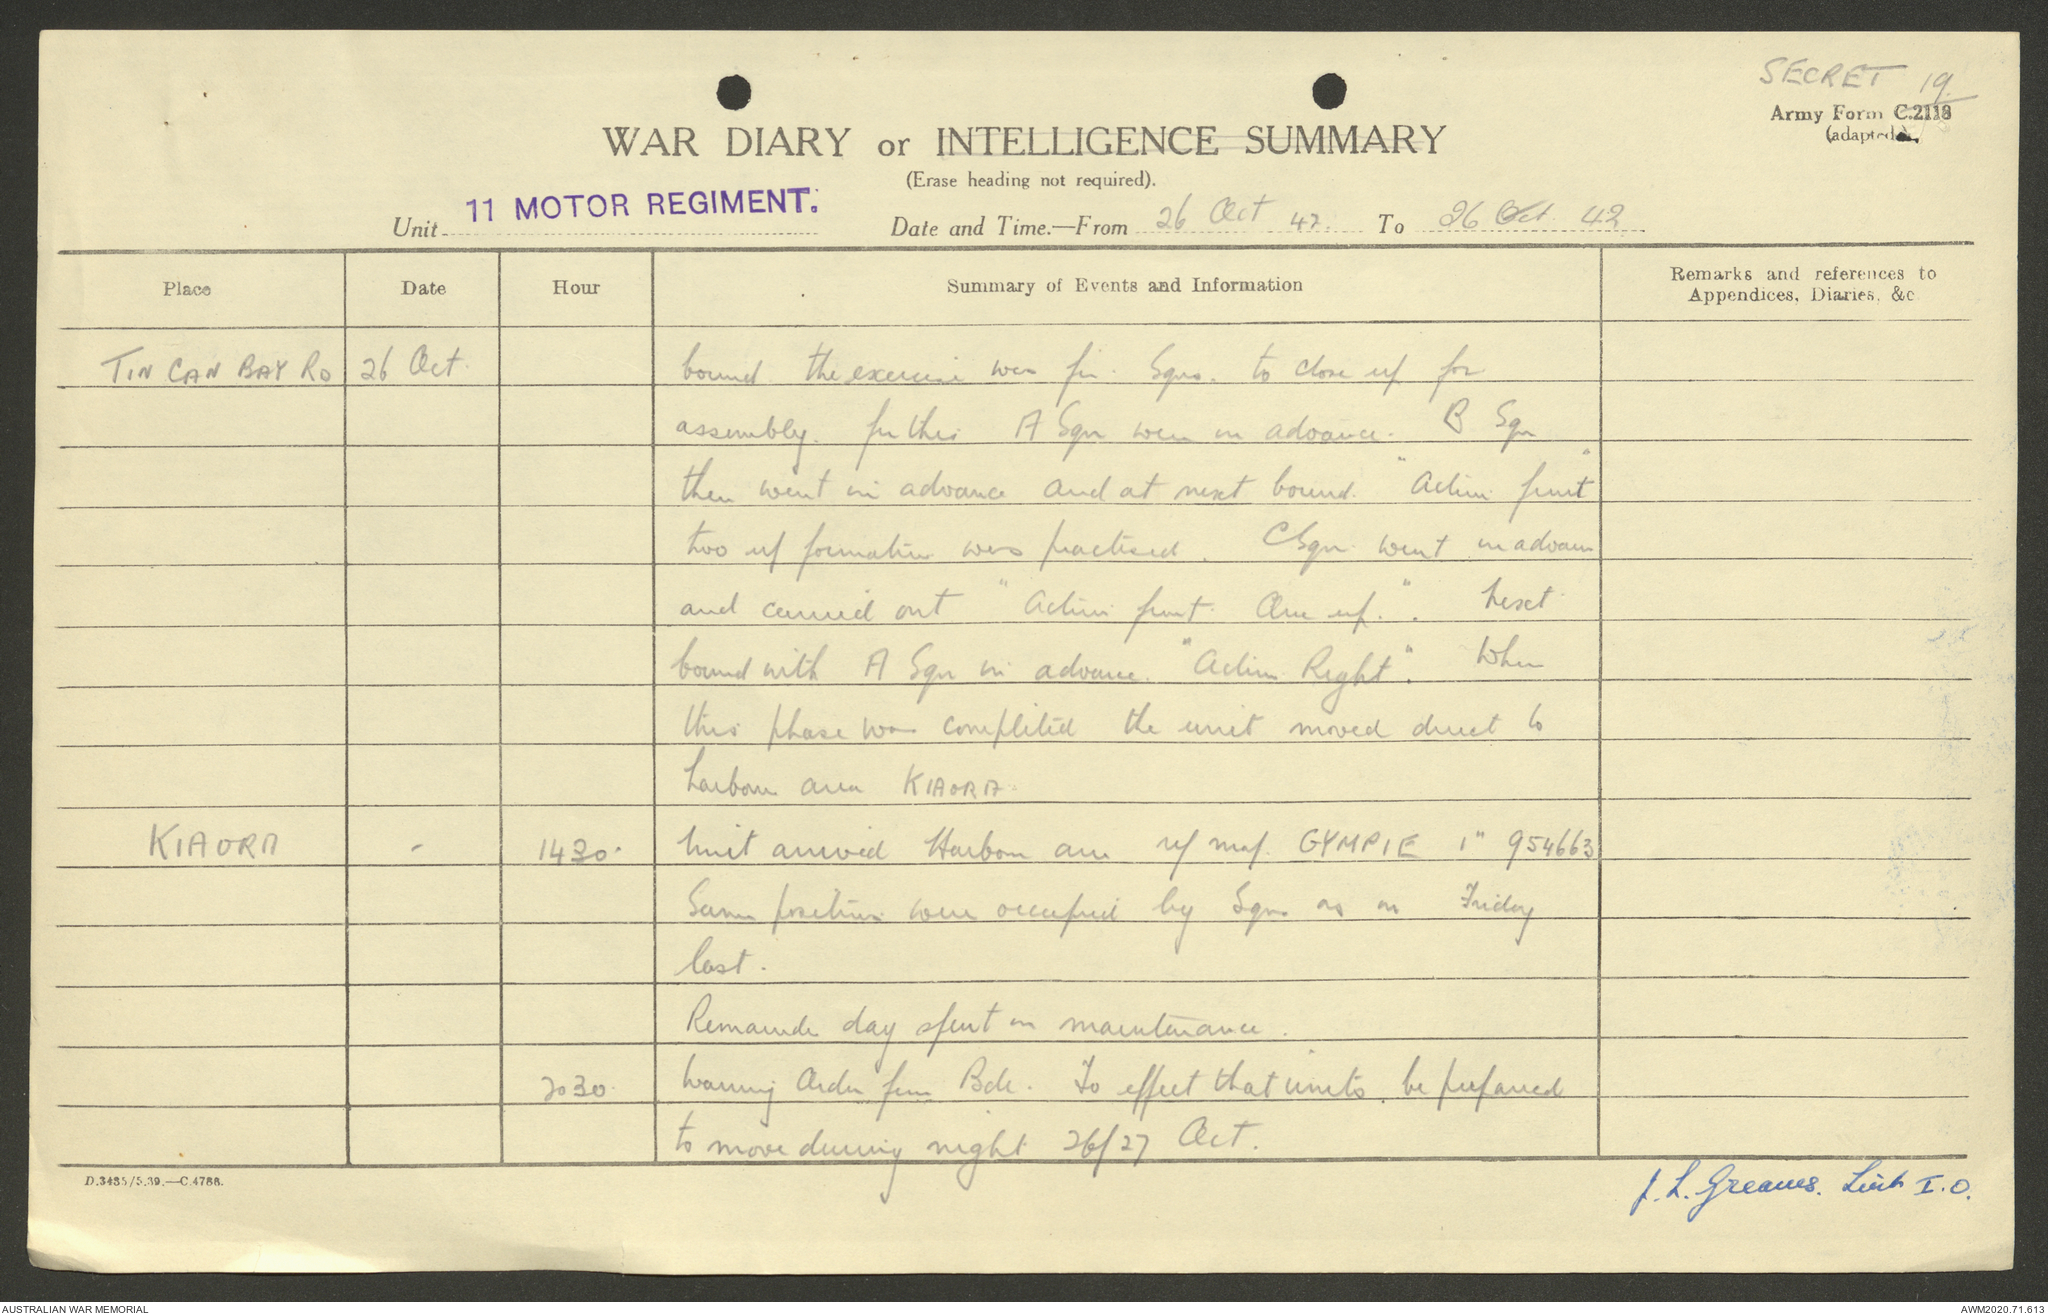 SECRET 19.
Army Form C.2118
(adapted)
WAR DIARY or INTELLIGENCE SUMMARY
(Erase heading not required).
Unit 11 MOTOR REGIMENT. Date and Time.—From 26 Oct 42. To 26 Oct. 42
Place Date Hour Summary of Events and Information Remarks and references to
Appendices, Diaries, &c
TIN CAN BAY RD 26 Oct. bound. the exercise was for Sqns. to close up for
assembly. for this A Sqn were in advance. B Sqn
then went in advance and at next bound. "Action front"
two up formation was practised. C Sqn went in advance
and carried out "Action front. One up.". Next
bound with A Sqn in advance. "Action Right". When
this phase was completed the unit moved direct to
harbour area KIAORA
KIAORA - 1430. Unit arrived Harbour area ref map GYMPIE 1" 954663
Same positions were occupied by Sqns as on Friday
last.
Remainder day spent on maintenance.
2030. Warning Order from Bde. To effect that units. be prepared
to move during night 26/27 Oct.
D.3485/5.39.—C.4788.
J. L. Greaves. Lieut I.O.
AUSTRALIAN WAR MEMORIAL
AWM2020.71.613